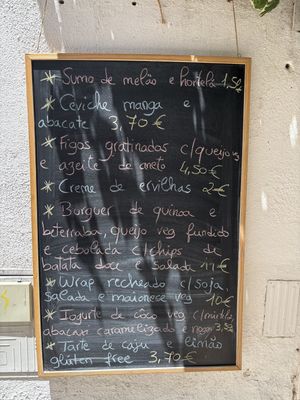 * Sumo de melão e hortelã 1,5€
* Ceviche manga e
abacate 3,70€
* Figos gratinados c/queijo veg
e azeite de aneto 4,50€
* Creme de ervilhas 2€
* Burguer de quinoa e
beterraba, queijo veg fundido
e cebolada c/chips de
batata doce e salada 11€
* Wrap recheado c/soja,
salada e maionese veg 10€
* Iogurte de côco veg c/mirtilo,
abacaxi caramelizado e nozes 3,5€
* Tarte de caju e limão
glúten free 3,70€